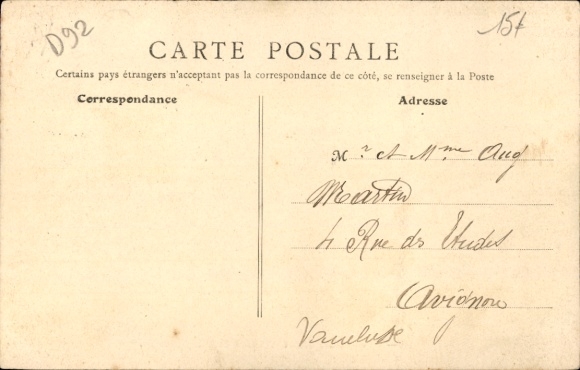 D92
15f
CARTE POSTALE
Certains pays étrangers n'acceptant pas la correspondance de ce côté, se renseigner à la Poste
Correspondance
Adresse
Mr et Mme Aug
Martin
4 Rue des Etudes
Avignon
Vaucluse